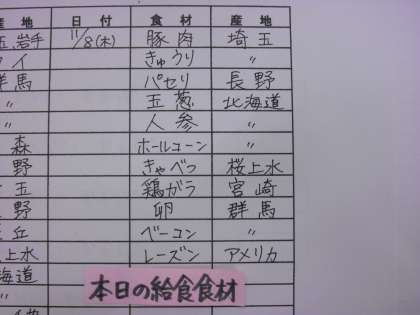 産地 日付 食材 産地
玉、岩手 11/8(木) 豚肉 埼玉
タイ きゅうり 〃
群馬 パセリ 長野
〃 玉葱 北海道
〃 人参 〃
森 ホールコーン 〃
野 きゃべつ 桜上水
玉 鶏ガラ 宮崎
野 卵 群馬
丘 ベーコン 〃
上水 レーズン アメリカ
海道
〃
本日の給食食材